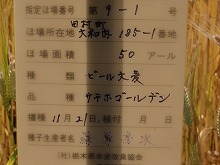 指定ほ場番号 第9-1号
ほ場所在地 田村町 大和町 185-1番地
ほ場面積 50アール
種類 ビール大麦
品種 サチホゴールデン
播種 11月21日,植付 月 日
種子生産者名
(社)栃木県米麦改良協会